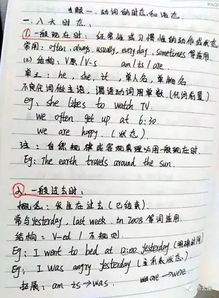 专题一:动词的时态和语态
一、八大时态:
① 一般现在时:经常性或习惯性的动作或状态
常用:often, always, usually, everyday, sometimes 等连用
(2) 结构:V原 / V-s am / is / are
单三:he, she, it, 单人名, 单物名
不可代词做主语,谓语动词用单数
Eg: she likes to watch TV.
we often get up at 6:30.
we are happy. (状态)
注:自然规律或客观真理必用一般现在时
Eg: The earth travels around the sun.
② 一般过去时:
概念:发生在过去 (已结束)
常与 yesterday, last week, in 2008 等词连用
结构:V-ed / 不规则
Eg: I went to bed at 0:00 yesterday
Eg: I was angry yesterday
拓展:am is → was. are → were